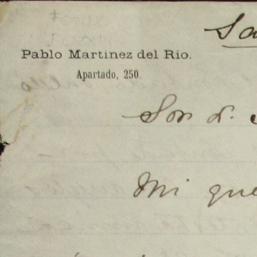 Pablo Martinez del Rio.
Apartado, 250.
Sor. D.
Mi que